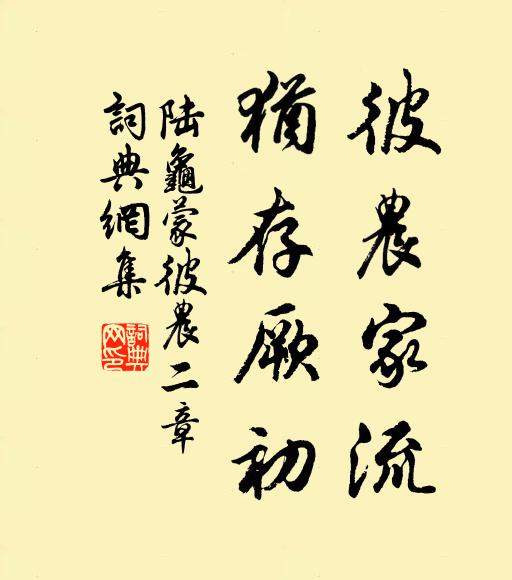 彼農家流
猶存厥初
陸龜蒙彼農二章
詞典網集
詞典網印